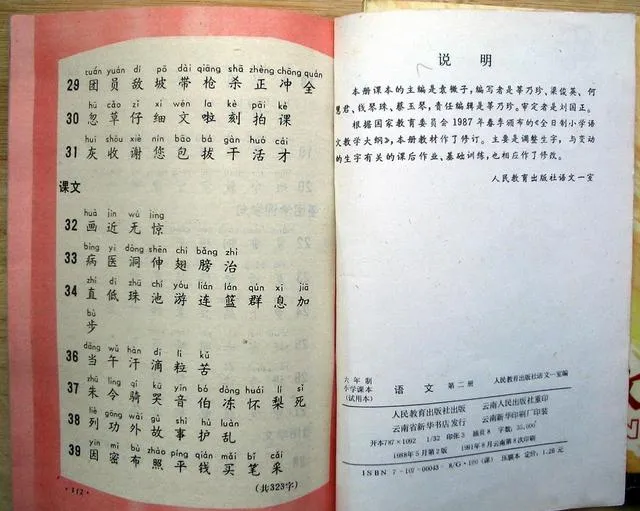 tuán yuán dí pō dài qiāng shā zhèng chōng quán
29 团 员 敌 坡 带 枪 杀 正 冲 全
hū cǎo zǐ xì wén la kè pāi kè
30 忽 草 仔 细 文 啦 刻 拍 课
huī shōu xiè nín bāo bá gàn huó cái
31 灰 收 谢 您 包 拔 干 活 才
课文
huà jìn wú jīng
32 画 近 无 惊
bìng yī dòng shēn chì bǎng zhì
33 病 医 洞 伸 翅 膀 治
zhí dī zhū chí yóu lián lán qún xī jiā
34 直 低 珠 池 游 连 篮 群 息 加
bù
步
dāng wǔ hàn dī lì kǔ
36 当 午 汗 滴 粒 苦
zhū lìng qí kū yīn bó dòng huái lí sǐ
37 朱 令 骑 哭 音 伯 冻 怀 梨 死
liè gōng wài gù shì hù luàn
38 列 功 外 故 事 护 乱
yīn mì bù zhào píng qián mǎi bǐ cǎi
39 因 密 布 照 平 钱 买 笔 采
·112·
(共323字)
说 明
本册课本的主编是袁微子,编写者是莘乃珍、梁俊英、何
慧君、钱琴珠、蔡玉琴,责任编辑是莘乃珍。审定者是刘国正。
根据国家教育委员会1987年春季颁布的《全日制小学语
文教学大纲》,本册教材作了修订。主要是调整生字,与变动
的生字有关的课后作业、基础训练,也相应作了修改。
人民教育出版社语文一室
六年制
小学课本
(试用本)
语文 第二册
人民教育出版社语文一室编
人民教育出版社出版 云南人民出版社重印
云南省新华书店发行 云南新华印刷厂印装
开本787×1092 1/32 印张3 插页8 字数35,000
1988年5月第2版 1991年8月云南第8次印刷
ISBN 7-107-00043-8/G·100(课) 压膜本 定价:1.28元